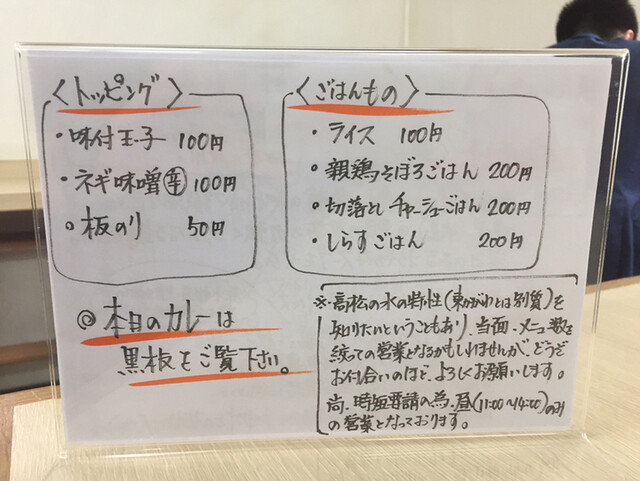 〈トッピング〉
・味付玉子 100円
・ネギ味噌㊛100円
・板のり 50円
◎本日のカレーは
黒板をご覧下さい。
〈ごはんもの〉
・ライス 100円
・親鶏そぼろごはん 200円
・切落としチャーシューごはん 200円
・しらすごはん 200円
※高松の水の特性(東かがわとは別質)を
知りたいということもあり、当面、メニュー数を
絞っての営業となるかもしれませんが、どうぞ
お付合いのほど、よろしくお願いします。
尚、時短要請の為、昼(11:00〜14:00)のみ
の営業となっております。